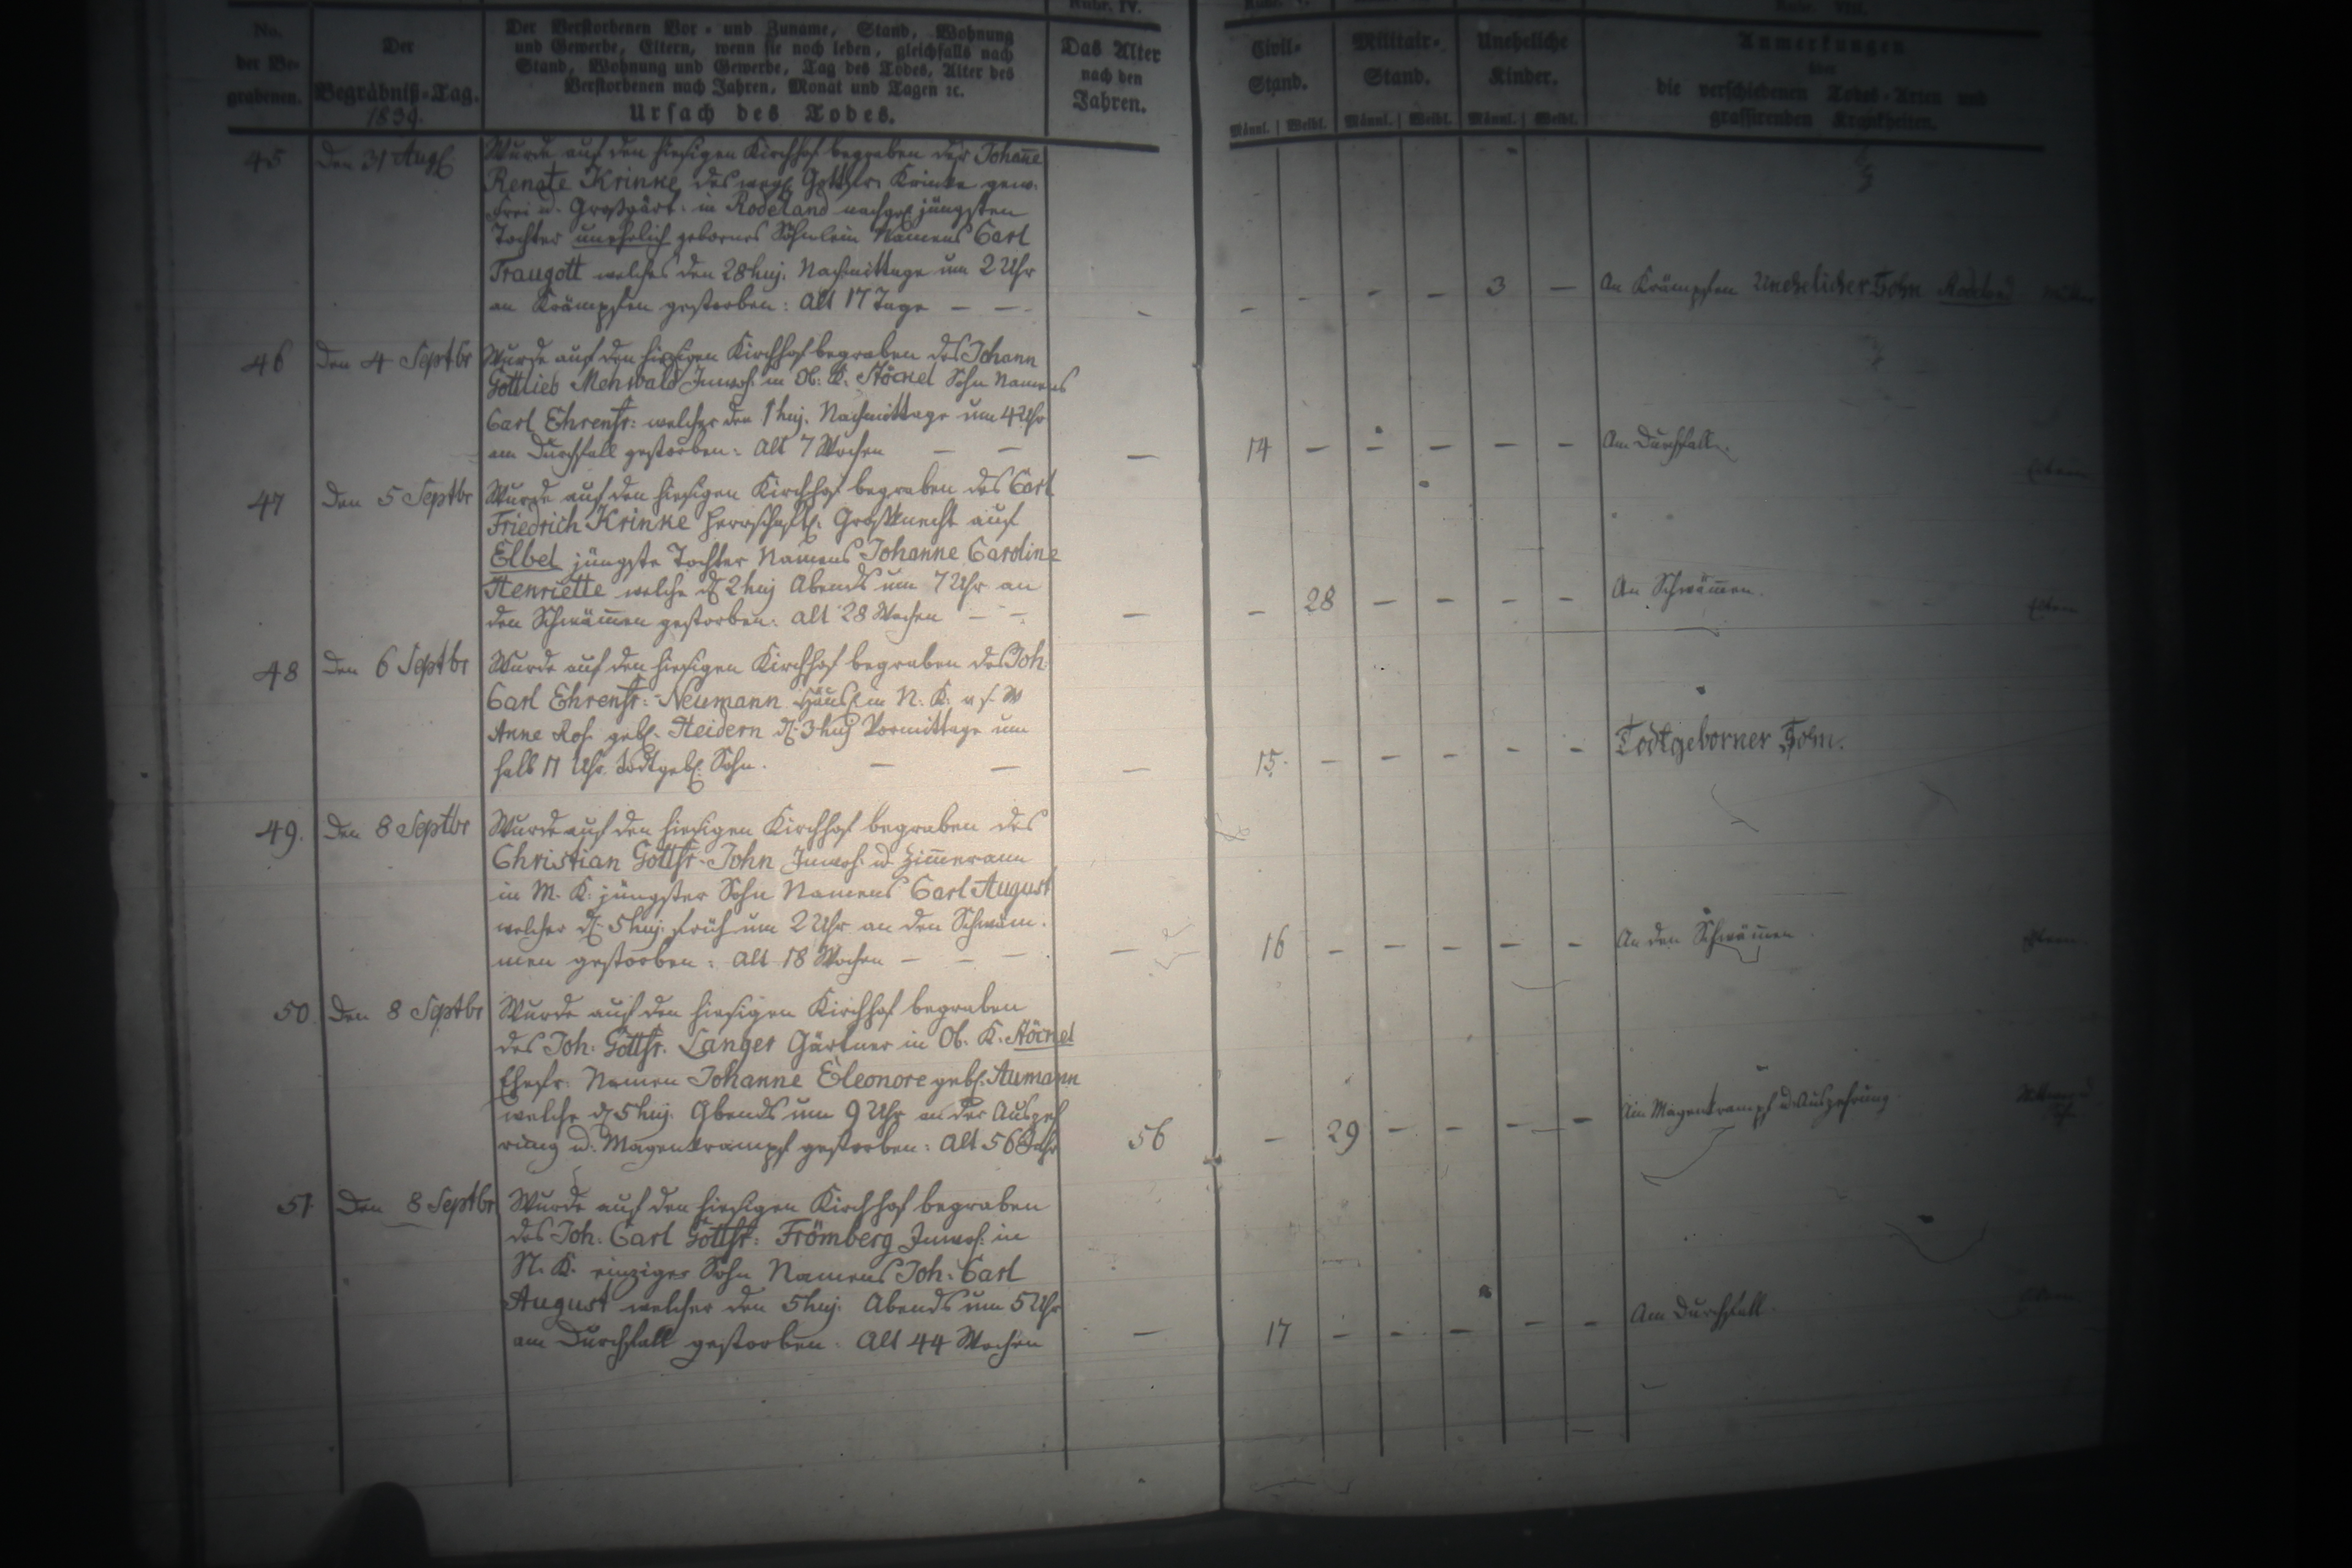 Rubr. IV.
No. der Begrabenen.
Der Begräbniß-Tag.
1839.
Der Verstorbenen Vor- und Zuname, Stand, Wohnung
und Gewerbe, Eltern, wenn sie noch leben, gleichfalls nach
Stand, Wohnung und Gewerbe, Tag des Todes, Alter des
Verstorbenen nach Jahren, Monat und Tagen ꝛc.
Ursach des Todes.
Das Alter
nach den
Jahren.
Civil-
Stand.
Militair-
Stand.
Uneheliche
Kinder.
Männl. | Weibl. Männl. | Weibl. Männl. | Weibl.
Anmerkungen
über
die verschiedenen Todes-Arten und
grassirenden Krankheiten.
45 Den 31 Aug
Wurde auf den hiesigen Kirchhof begraben der Johanne
Renate Krinke, des weyl Krinke gew.
Frei u. Großgärt. in Rodeland nachgel jüngsten
Tochter unehelich gebornes Söhnlein Namens Carl
Traugott welches den 28 huj. Nachmittags um 2 Uhr
an Krämpfen gestorben: Alt 17 Tage — —
3 — An Krämpfen Unehelicher Sohn
46 Den 4 Septbr
Wurde auf den hiesigen Kirchhof begraben des Johann
Gottlieb Menwald Inwoh. in Ob. K. Stöckel Sohn Namens
Carl Ehrenfr: welcher den 1 huj. Nachmittags um 4 Uhr
am Durchfall gestorben: Alt 7 Wochen — —
— 14 — — — — — Am Durchfall.
47 Den 5 Septbr
Wurde auf den hiesigen Kirchhof begraben des Carl
Friedrich Krinke herrschaftl. Großknecht auf
Elbel jüngste Tochter Namens Johanne Caroline
Henriette welche d 2 huj Abends um 7 Uhr an
den Schwämmen gestorben: Alt 28 Wochen — —
— — 28 — — — — An Schwämmen.
48 Den 6 Septbr
Wurde auf den hiesigen Kirchhof begraben des Joh.
Carl Ehrenfr: Neumann Häusl. in N. K. u s. W
Anne Ros. geb. Heidern d. 3 huj Vormittags um
halb 11 Uhr todtgeb. Sohn. — —
— 15. — — — — — Todtgeborner Sohn.
49. Den 8 Septbr
Wurde auf den hiesigen Kirchhof begraben des
Christian Gottfr. John Inwoh. u Zimmermann
in M. K. jüngster Sohn Namens Carl August
welcher d. 5 huj. früh um 2 Uhr an den Schwäm-
men gestorben: Alt 18 Wochen — — —
— 16 — — — — — An den Schwämmen.
50 Den 8 Septbr
Wurde auf den hiesigen Kirchhof begraben
des Joh. Gottfr. Langer Gärtner in Ob. K. Stöckel
Ehefr. Namen Johanne Eleonore geb. Aumann
welche d 5 huj. Abends um 9 Uhr an der Auszeh
rung u. Magenkrampf gestorben: Alt 56 Jahr
56 — 29 — — — — Am Magenkrampf u. Auszehrung
51 Den 8 Septbr
Wurde auf den hiesigen Kirchhof begraben
des Joh. Carl Gottfr: Frömberg Inwoh. in
N. K. einziger Sohn Namens Joh. Carl
August welcher den 5 huj. Abends um 5 Uhr
am Durchfall gestorben: Alt 44 Wochen
— 17 — — — — — Am Durchfall.